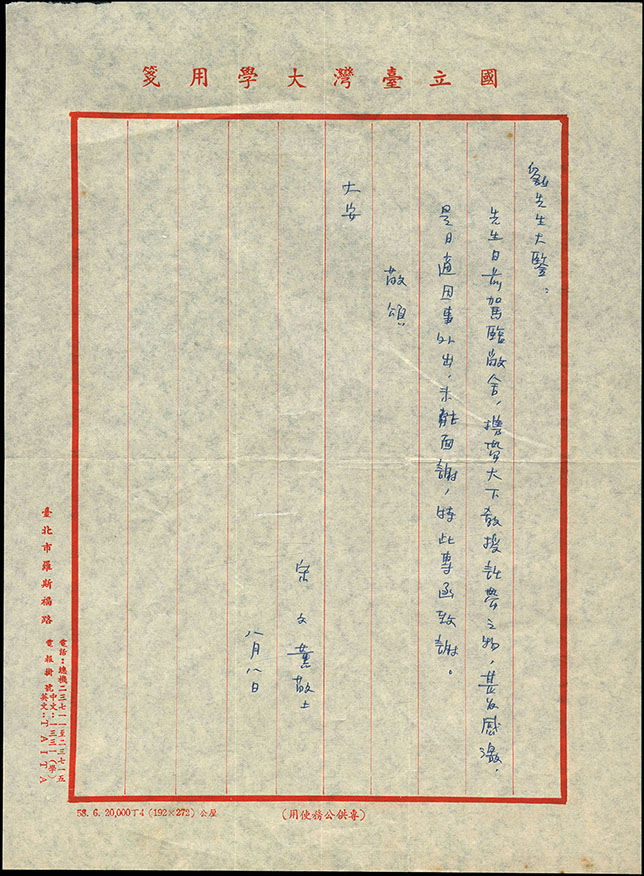 國立臺灣大學用箋
劉先生大鑒：
先生日前駕臨敝舍，携贺大下教授託帶之物，甚為感激，
是日適因事外出，未能面謝，特此專函致謝。
敬頌
大安
宋文薰敬上
八月八日
臺北市羅斯福路
電話：總機二三七一一至二三七一五
電報掛號 中文：一三三一(學)
英文：TAITA
(專供公務使用)
53. 6. 20,000丁4 (192×272) 公屋